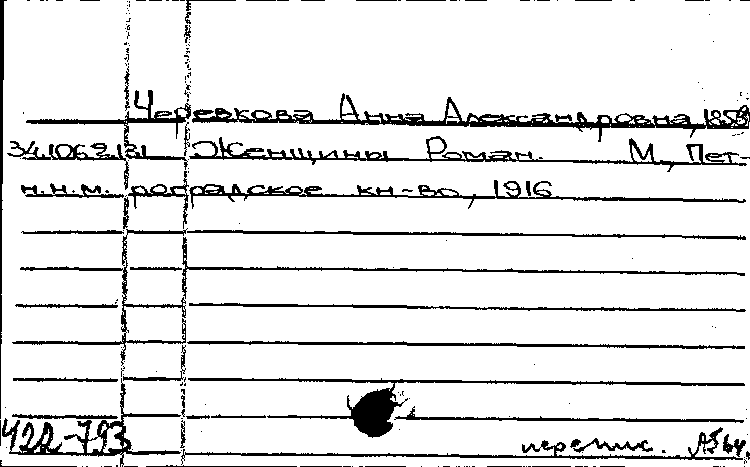 Черевкова Анна Александровна, 1858
34.106.2.131 Женщины Роман. М., Пет-
н.н.м. роградское кн-во, 1916
422-793
перепис.